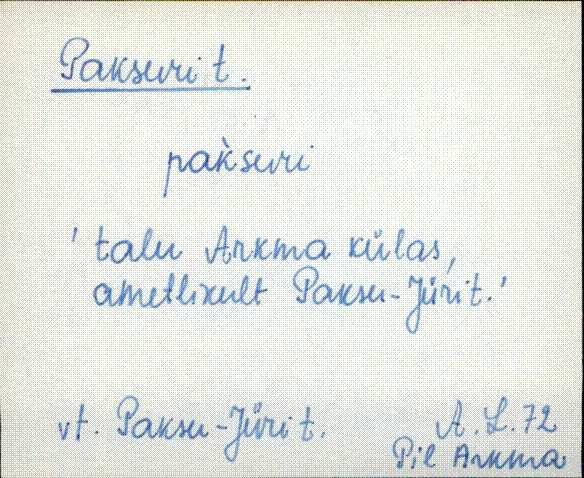 Paksuri t.
pak̀suri
' talu Arkma külas,
ametlikult Paksu-Jüri t.'
vt. Paksu-Jüri t.
A. L. 72
Pil Arkma